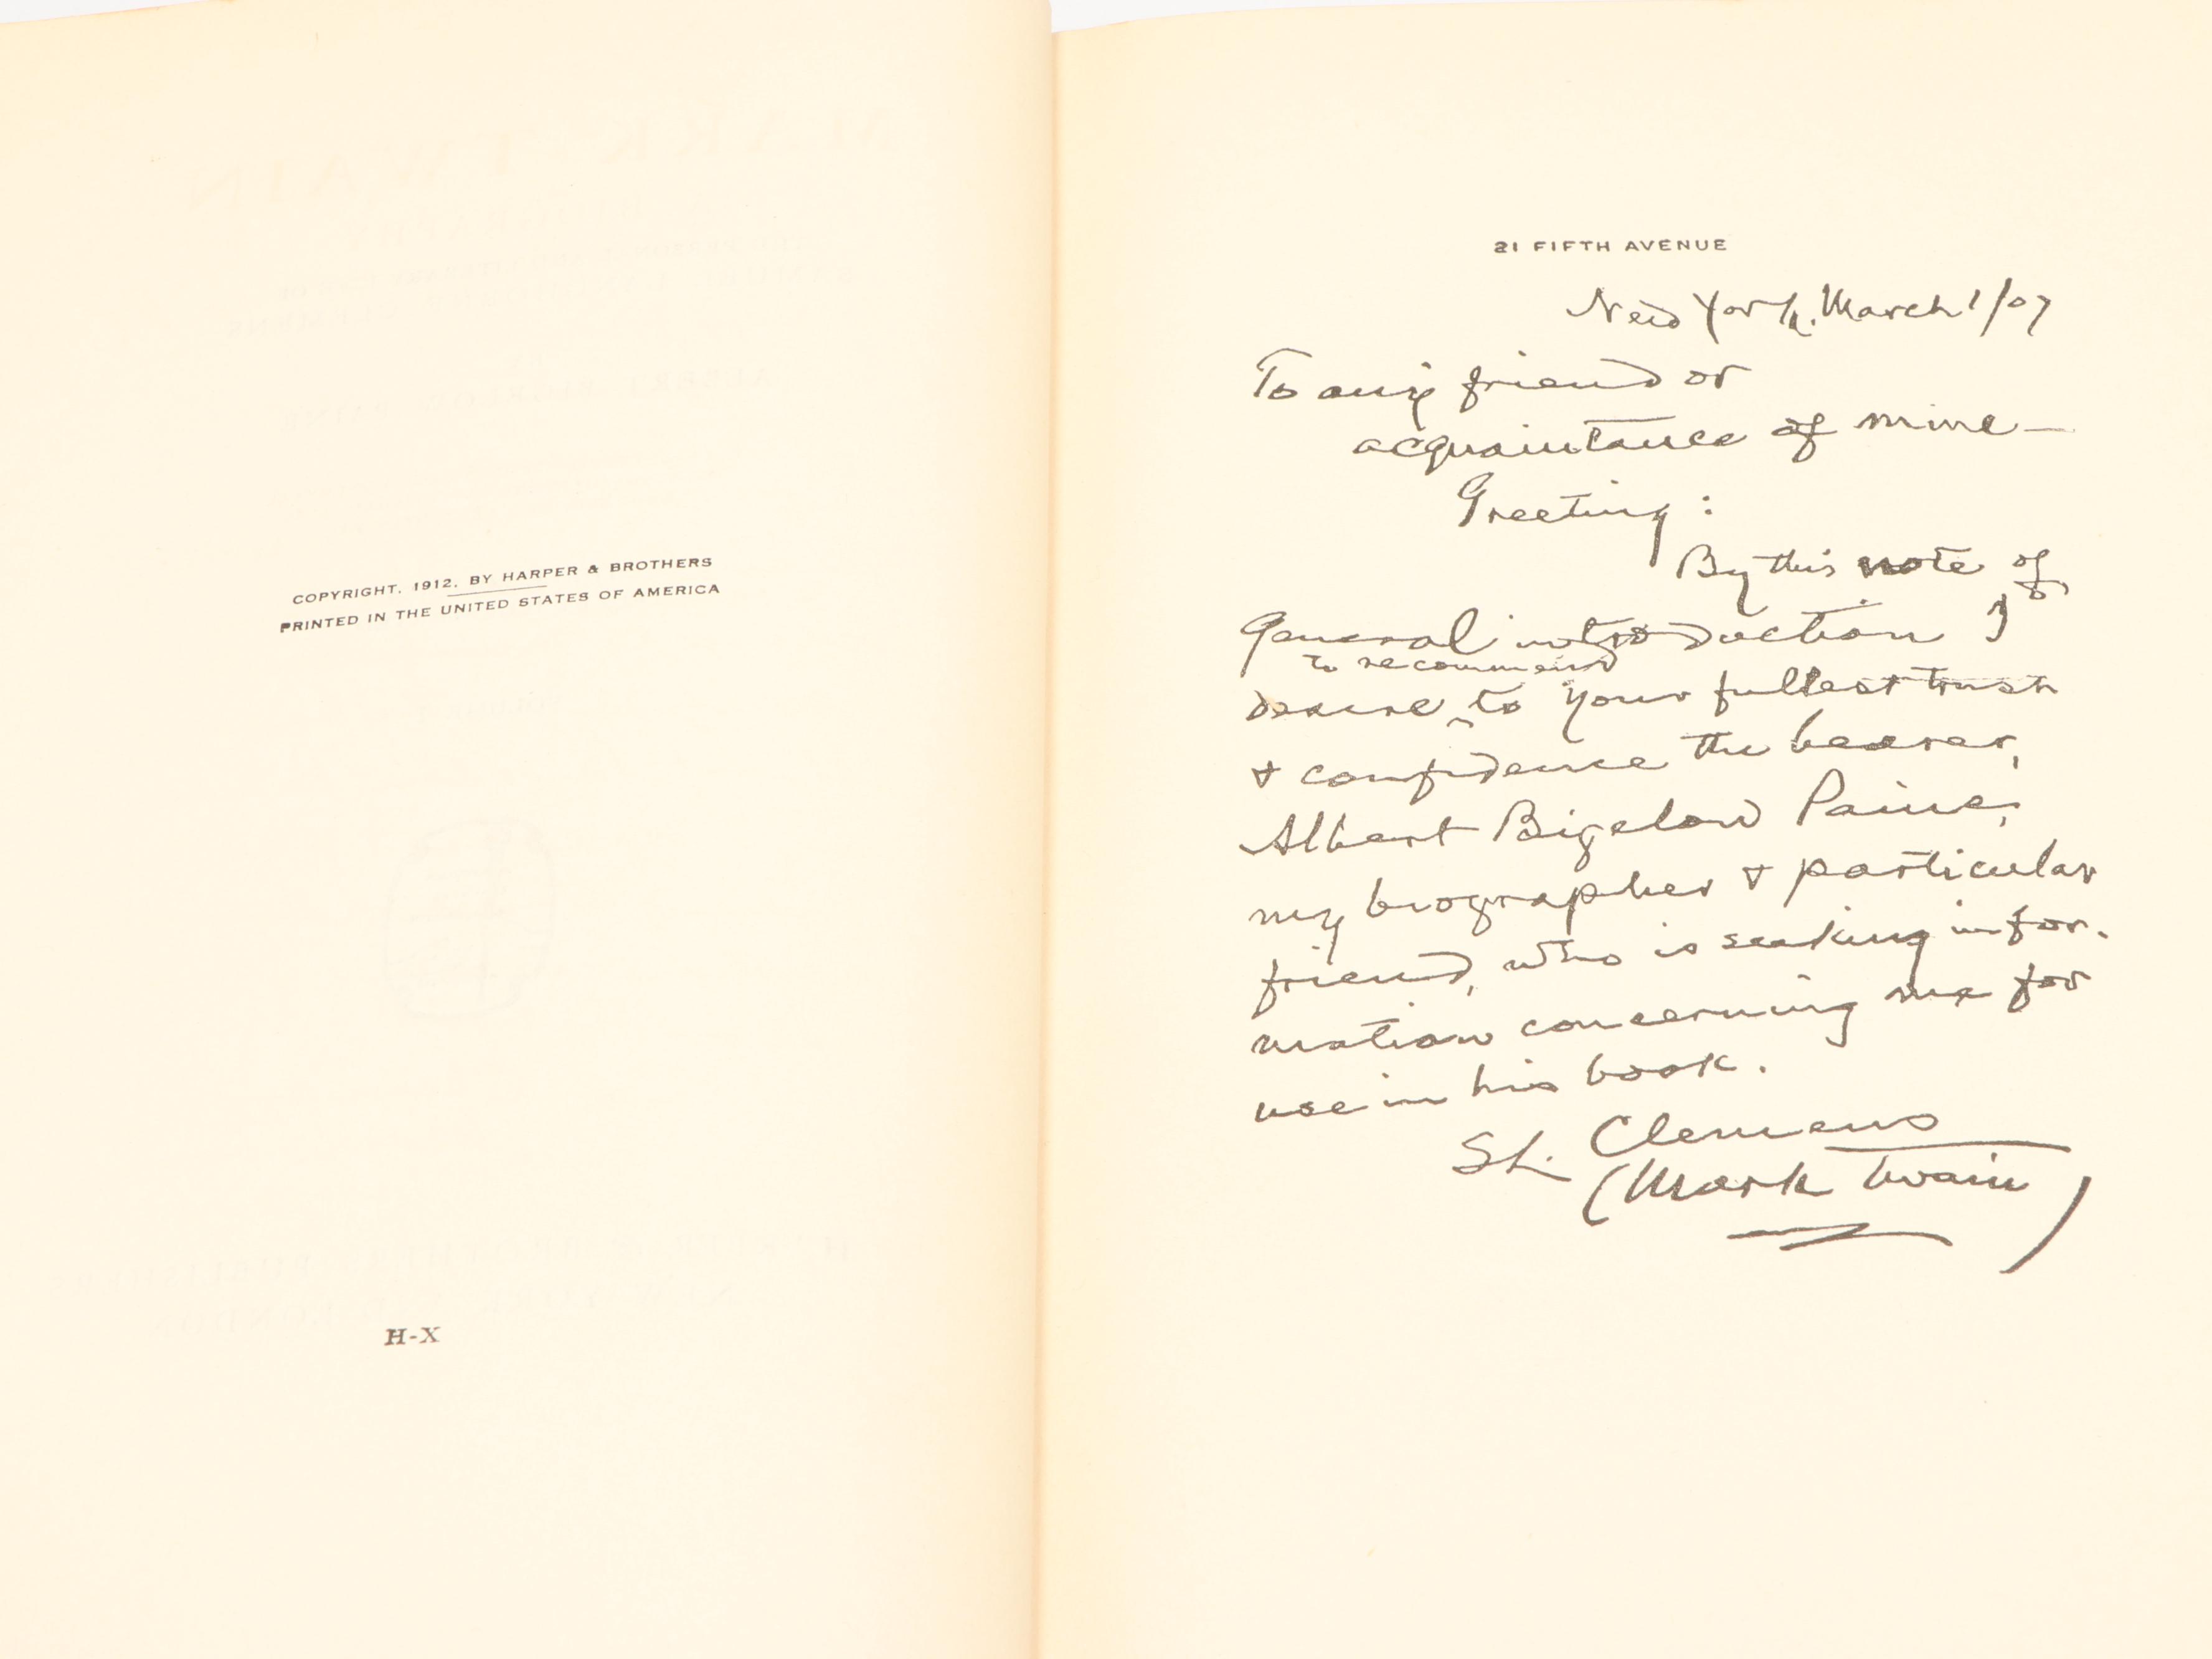 COPYRIGHT, 1912, BY HARPER & BROTHERS
PRINTED IN THE UNITED STATES OF AMERICA
H-X
21 FIFTH AVENUE
New York, March 1/07
To any friend or
acquaintance of mine—
Greeting:
By this note of
General introduction I
to recommend
desire to your fullest trust
& confidence the bearer,
Albert Bigelow Paine,
my biographer & particular
friend, who is seeking infor-
mation concerning me for
use in his book.
S L. Clemens
(Mark Twain)